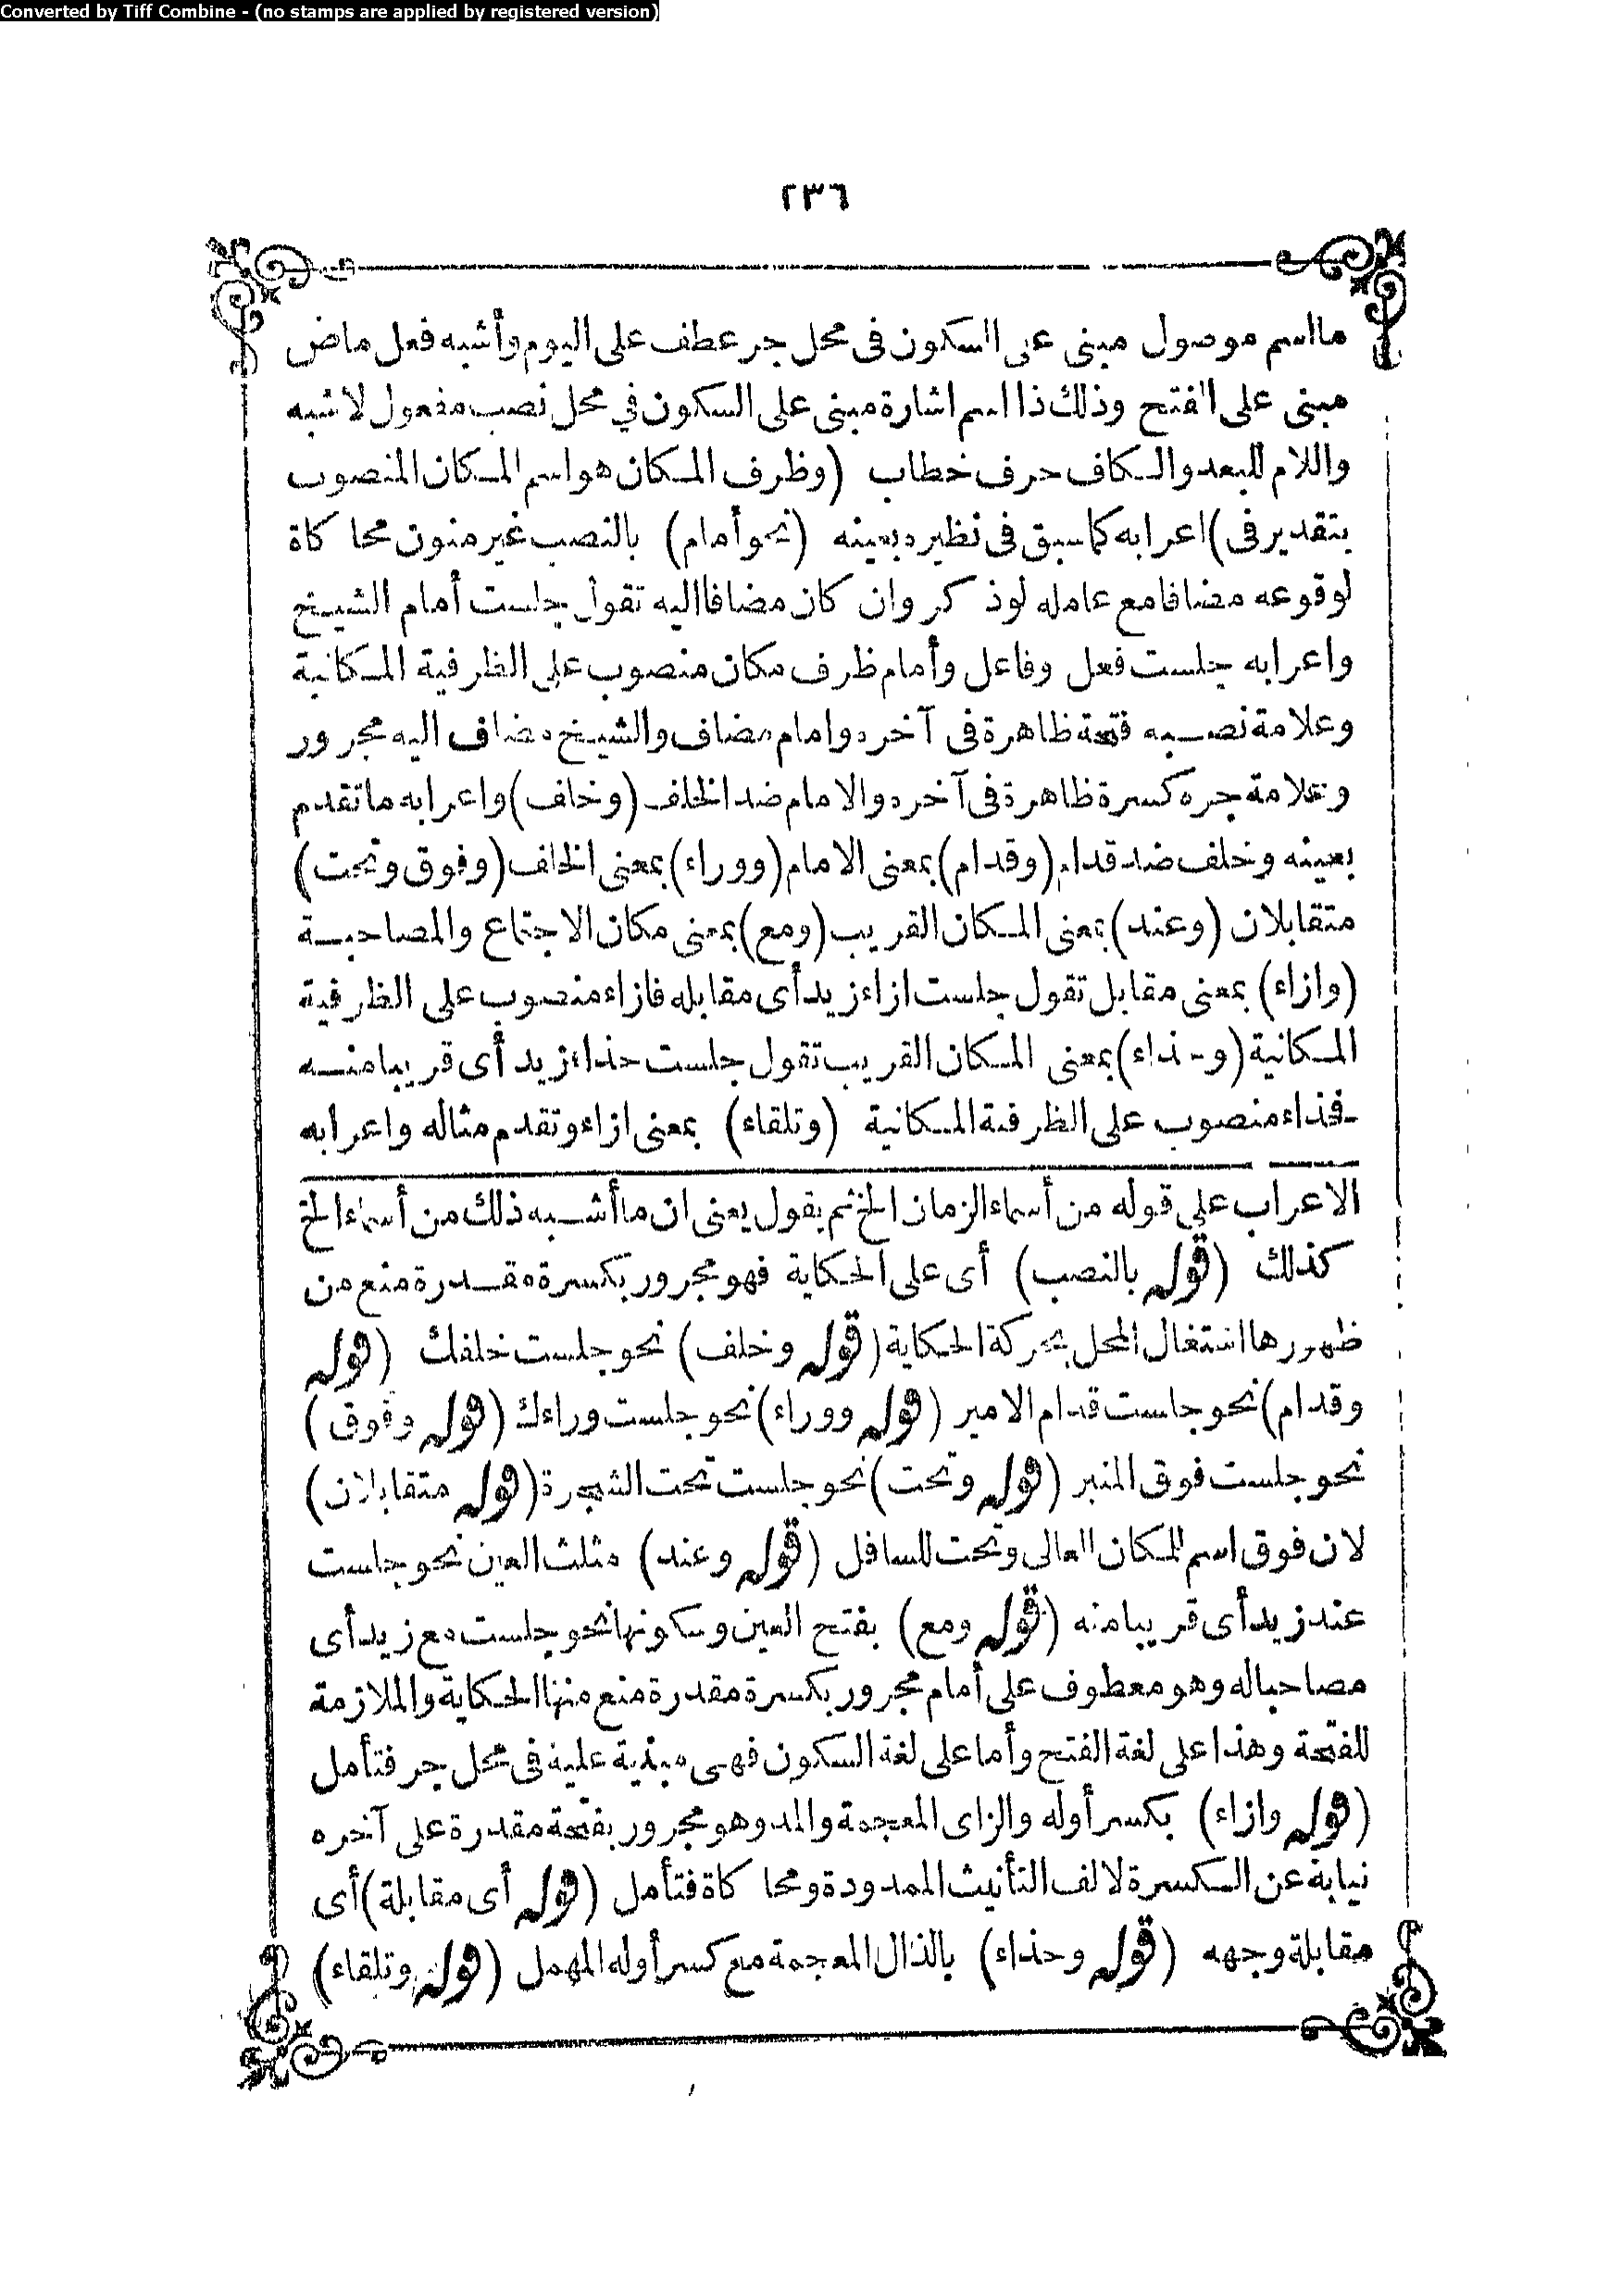 Converted by Tiff Combine - (no stamps are applied by registered version)
٢٣٦
مااسم موصول مبنى على السكون فى محل جر عطف على اليوم وأشبه فعل ماض
مبنى على الفتح وذلك ذا اسم اشارة مبنى على السكون في محل نصب مفعول لاشبه
واللام للبعد والكاف حرف خطاب (وظرف المكان هو اسم المكان المنصوب
بتقدير فى) اعرابه كما سبق فى نظيره بعينه (نحو أمام) بالنصب غير منون محاكاة
لوقوعه مضافا مع عامله لوذكر وان كان مضافا اليه تقول جلست أمام الشيخ
واعرابه جلست فعل وفاعل وأمام ظرف مكان منصوب على الظرفية المكانية
وعلامة نصبه فتحة ظاهرة فى آخره وامام مضاف والشيخ مضاف اليه مجرور
وعلامة جره كسرة ظاهرة فى آخره والامام ضد الخلف (وخلف) واعرابه ما تقدم
بعينه وخلف ضد قدام (وقدام) بمعنى الامام (ووراء) بمعنى الخلف (وفوق وتحت)
متقابلان (وعند) بمعنى المكان القريب (ومع) بمعنى مكان الاجتماع والمصاحبة
(وازاء) بمعنى مقابل تقول جلست ازاء زيد أى مقابله فازاء منصوب على الظرفية
المكانية (وحذاء) بمعنى المكان القريب تقول جلست حذاء زيد أى قريبا منه
فحذاء منصوب على الظرفية المكانية (وتلقاء) بمعنى ازاء وتقدم مثاله واعرابه
الاعراب على قوله من أسماء الزمان الخ ثم يقول يعنى ان ما أشبه ذلك من أسماء الخ
كذلك (قوله بالنصب) أى على الحكاية فهو مجرور بكسرة مقدرة منع من
ظهورها اشتغال المحل بحركة الحكاية (قوله وخلف) نحو جلست خلفك (قوله
وقدام) نحو جلست قدام الامير (قوله ووراء) نحو جلست وراءك (قوله وفوق)
نحو جلست فوق المنبر (قوله وتحت) نحو جلست تحت الشجرة (قوله متقابلان)
لان فوق اسم للمكان العالى وتحت للسافل (قوله وعند) مثلث العين نحو جلست
عند زيد أى قريبا منه (قوله ومع) بفتح العين وسكونها نحو جلست مع زيد أى
مصاحبا له وهو معطوف على أمام مجرور بكسرة مقدرة منع منها الحكاية والملازمة
للفتحة وهذا على لغة الفتح وأما على لغة السكون فهى مبنية عليه فى محل جر فتأمل
(قوله وازاء) بكسر أوله والزاى المعجمة والمد وهو مجرور بفتحة مقدرة على آخره
نيابة عن الكسرة لالف التأنيث الممدودة ومحاكاة فتأمل (قوله أى مقابلة) أى
مقابلة وجهه (قوله وحذاء) بالذال المعجمة مع كسر أوله المهمل (قوله وتلقاء)